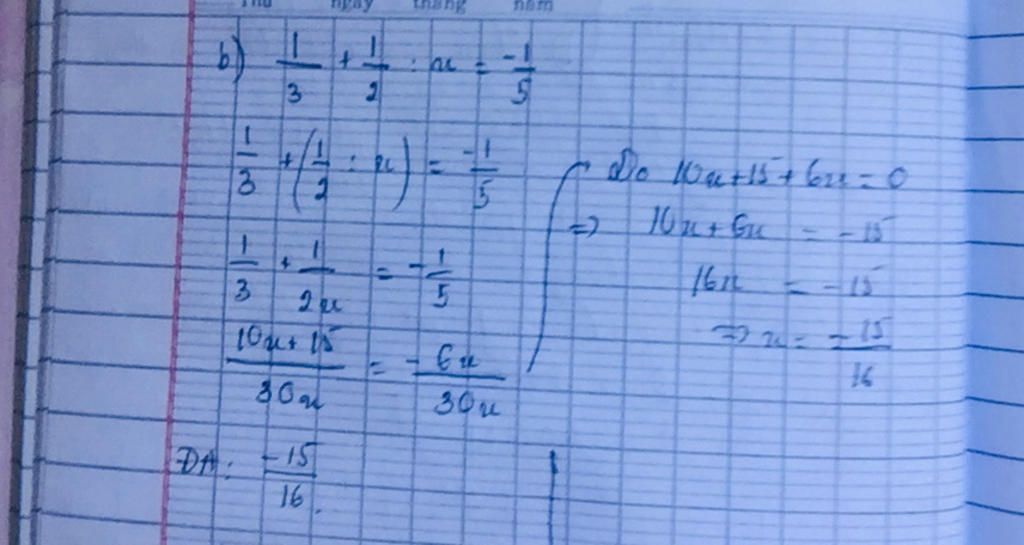 Thứ ngày tháng năm
b) 1/3 + 1/2 : x = -1/5
1/3 + (1/2 : x) = -1/5
1/3 + 1/2x = -1/5
10x + 15/30x = -6x/30x
ĐA: -15/16.
Do 10x + 15 + 6x = 0
=> 10x + 6x = -15
16x = -15
=> x = -15/16